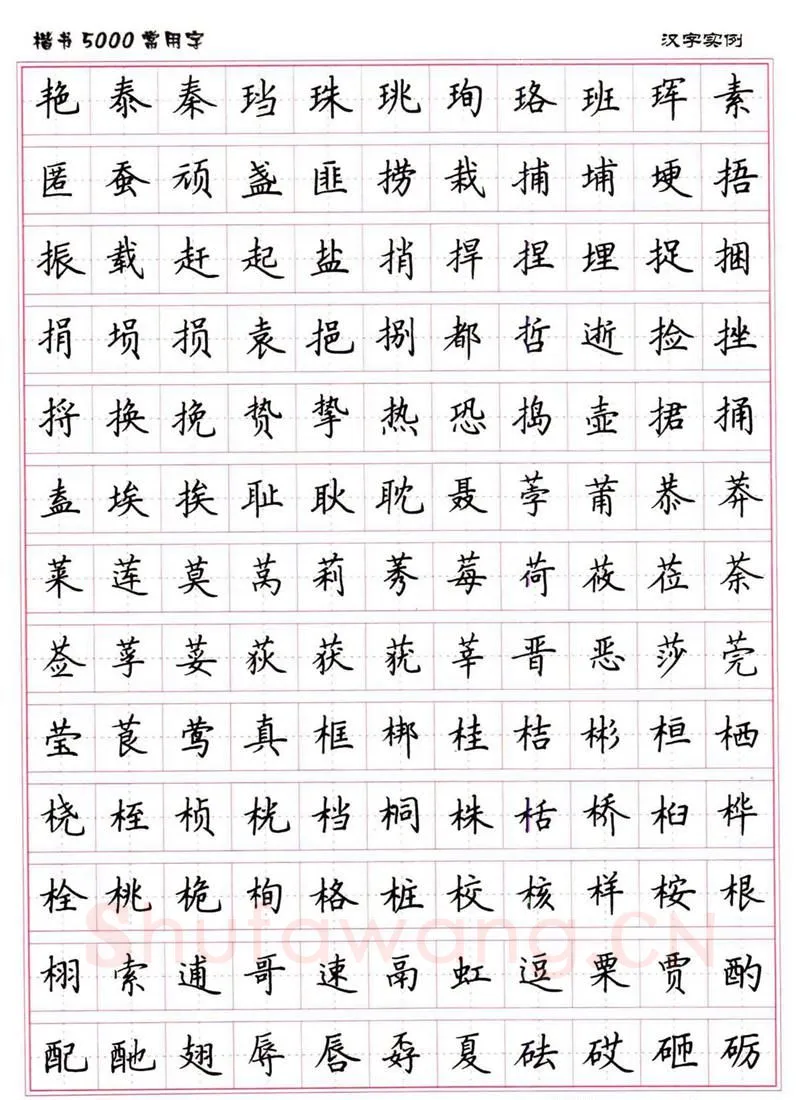 楷书5000常用字 汉字实例
艳泰秦珰珠珧珣珞班珲素
匿蚕顽盏匪捞栽捕埔埂捂
振载赶起盐捎捍捏埋捉捆
捐埙损袁挹捌都哲逝捡挫
捋换挽贽挚热恐捣壶捃捅
盍埃挨耻耿耽聂荸莆恭莽
莱莲莫莴莉莠莓荷莜莅荼
莶莩荽荻获莸莘晋恶莎莞
莹莨莺真框梆桂桔彬桓栖
桡桎桢桄档桐株栝桥桕桦
栓桃桅栒格桩校核样桉根
栩索逋哥速鬲虹逗栗贾酌
配酏翅辱唇孬夏砝砹砸砺
Shufawang.CN